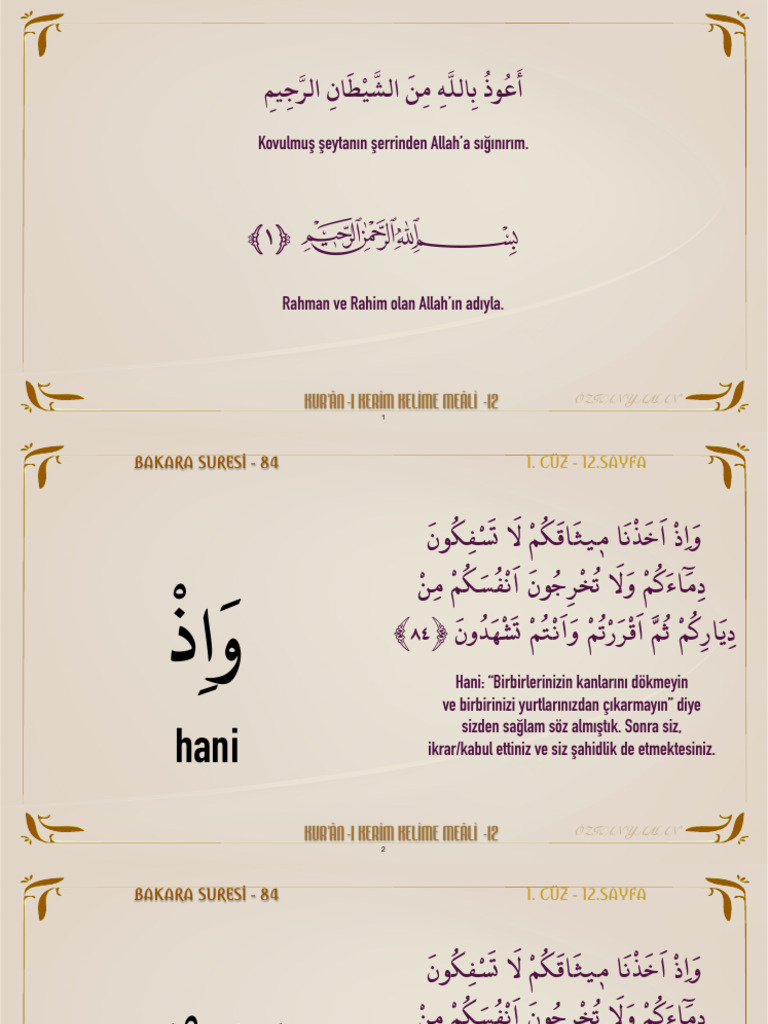 أَعُوذُ بِاللَّهِ مِنَ الشَّيْطَانِ الرَّجِيمِ
Kovulmuş şeytanın şerrinden Allah'a sığınırım.
بِسْمِ اللّٰهِ الرَّحْمٰنِ الرَّحِيمِ ﴿١﴾
Rahman ve Rahim olan Allah'ın adıyla.
KUR'ÂN-I KERİM KELİME MEÂLİ -12
ÖZKAN YAMAN
1
BAKARA SURESİ - 84
1. CÜZ - 12.SAYFA
وَاِذْ اَخَذْنَا م۪يثَاقَكُمْ لَا تَسْفِكُونَ
دِمَٓاءَكُمْ وَلَا تُخْرِجُونَ اَنْفُسَكُمْ مِنْ
دِيَارِكُمْ ثُمَّ اَقْرَرْتُمْ وَاَنْتُمْ تَشْهَدُونَ ﴿٨٤﴾
وَاِذْ
hani
Hani: “Birbirlerinizin kanlarını dökmeyin
ve birbirinizi yurtlarınızdan çıkarmayın” diye
sizden sağlam söz almıştık. Sonra siz,
ikrar/kabul ettiniz ve siz şahidlik de etmektesiniz.
KUR'ÂN-I KERİM KELİME MEÂLİ -12
ÖZKAN YAMAN
2
BAKARA SURESİ - 84
1. CÜZ - 12.SAYFA
وَاِذْ اَخَذْنَا م۪يثَاقَكُمْ لَا تَسْفِكُونَ
دِمَٓاءَكُمْ وَلَا تُخْرِجُونَ اَنْفُسَكُمْ مِنْ